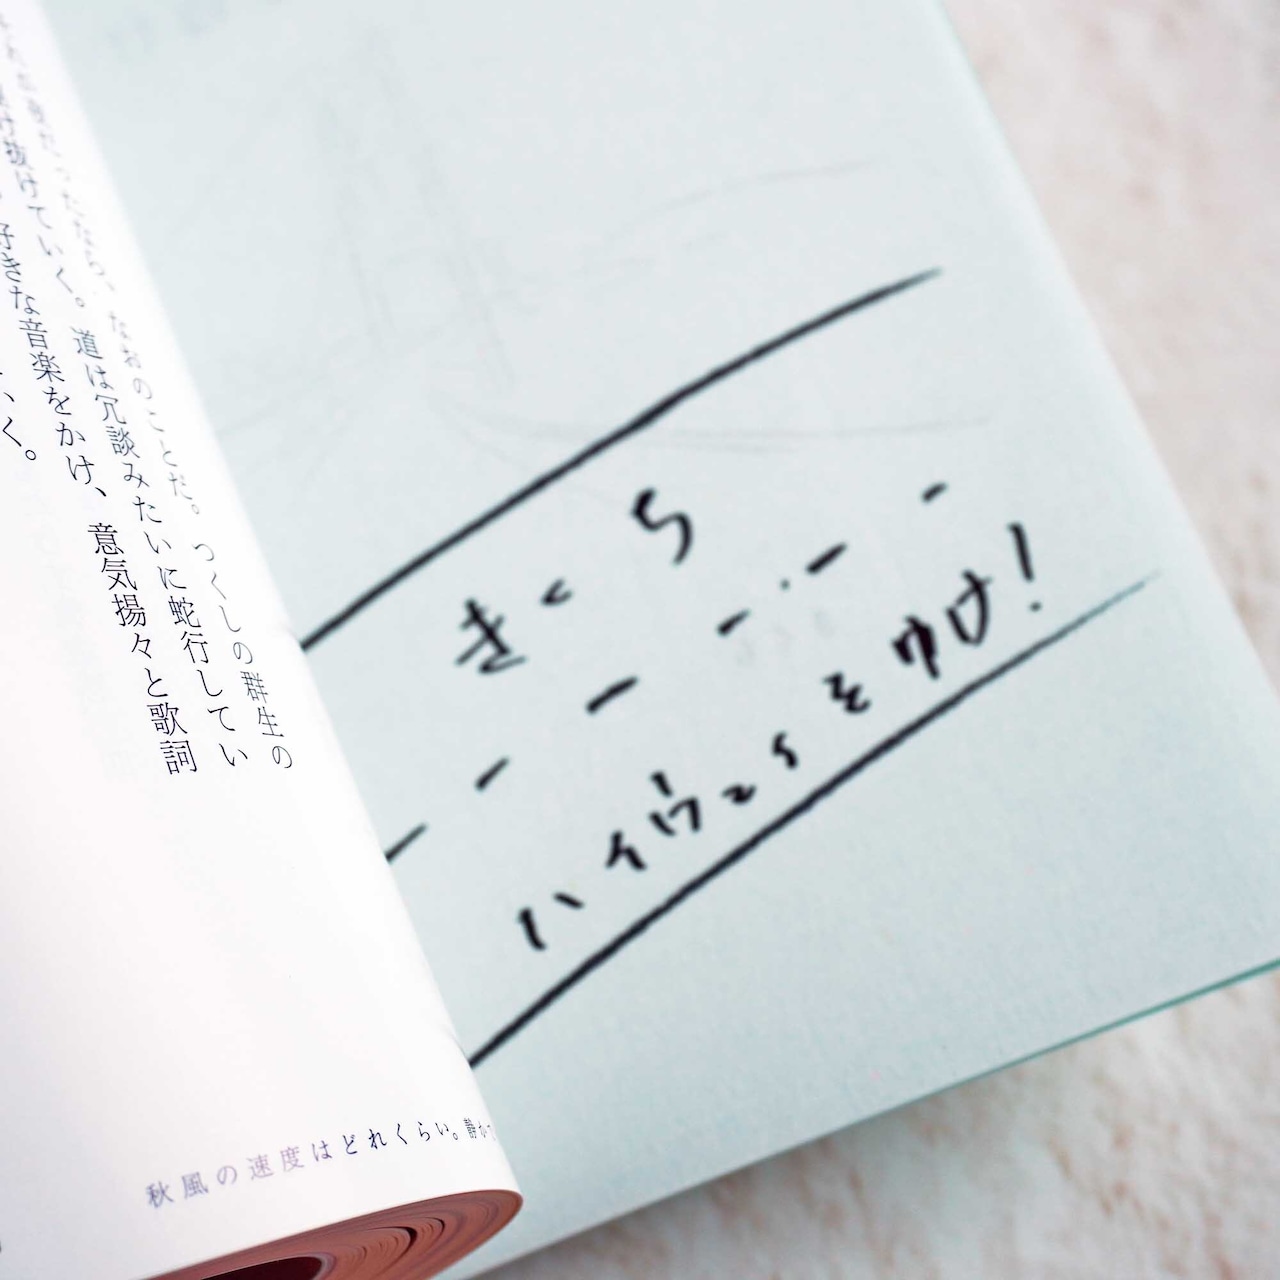 ったなら、なおのことだ。つくしの群生の
け抜けていく。道は冗談みたいに蛇行してい
好きな音楽をかけ、意気揚々と歌詞
いく。
秋風の速度はどれくらい。静か
きくち
ハイウェイをゆけ!